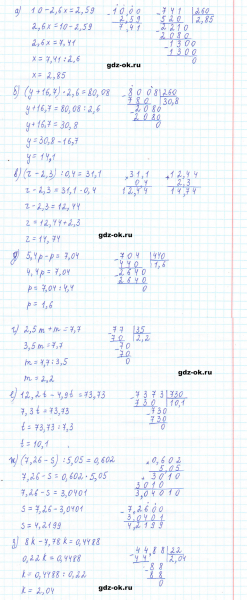 а) 10 - 2,6x = 2,59
2,6x = 10 - 2,59
2,6x = 7,41
x = 7,41 : 2,6
x = 2,85
-10,00
2,59
7,41
-741 |260
520 |2,85
-2210
2080
-1300
1300
0
gdz-ok.ru
б) (y + 16,7) : 2,6 = 80,08
y + 16,7 = 80,08 : 2,6
y + 16,7 = 30,8
y = 30,8 - 16,7
y = 14,1
-8008 |260
780 |30,8
-2080
2080
0
gdz-ok.ru
в) (z - 2,3) : 0,4 = 31,1
z - 2,3 = 31,1 · 0,4
z - 2,3 = 12,44
z = 12,44 + 2,3
z = 14,74
×31,1
0,4
12,44
+12,44
2,3
14,74
gdz-ok.ru
5,4p - p = 7,04
4,4p = 7,04
p = 7,04 : 4,4
p = 1,6
-704 |440
440 |1,6
-2640
2640
0
gdz-ok.ru
г) 2,5m + m = 7,7
3,5m = 7,7
m = 7,7 : 3,5
m = 2,2
-77 |35
70 |2,2
-70
70
0
gdz-ok.ru
е) 12,2t - 4,9t = 73,73
7,3t = 73,73
t = 73,73 : 7,3
t = 10,1
-7373 |730
730 |10,1
-730
730
0
gdz-ok.ru
ж) (7,26 - s) : 5,05 = 0,602
7,26 - s = 0,602 · 5,05
7,26 - s = 3,0401
s = 7,26 - 3,0401
s = 4,2199
×0,602
5,05
+3010
3010
3,04010
-7,2600
3,0401
4,2199
gdz-ok.ru
8k - 7,78k = 0,4488
0,22k = 0,4488
k = 0,4488 : 0,22
k = 2,04
-44,88 |22
44 |2,04
-88
88
0
gdz-ok.ru